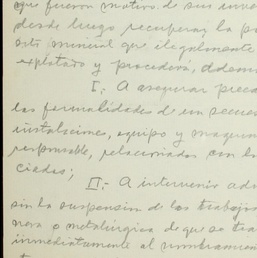 que fueron motivo de sus inver
desde luego recuperar la po
sito mineral que ilegalmente
explotado y procederá, adem
I.- A asegurar preca
las formalidades de un secues
instalaciones, equipo y maquin
responsable, relacionados con lo
ciados;
II.- A intervenir adm
sin la suspensión de los trabajos
nera o metalúrgica de que se tra
inmediatamente al nombramien